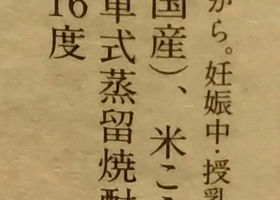 から。妊娠中・授乳
国産)、米こ
単式蒸留焼酎
16度